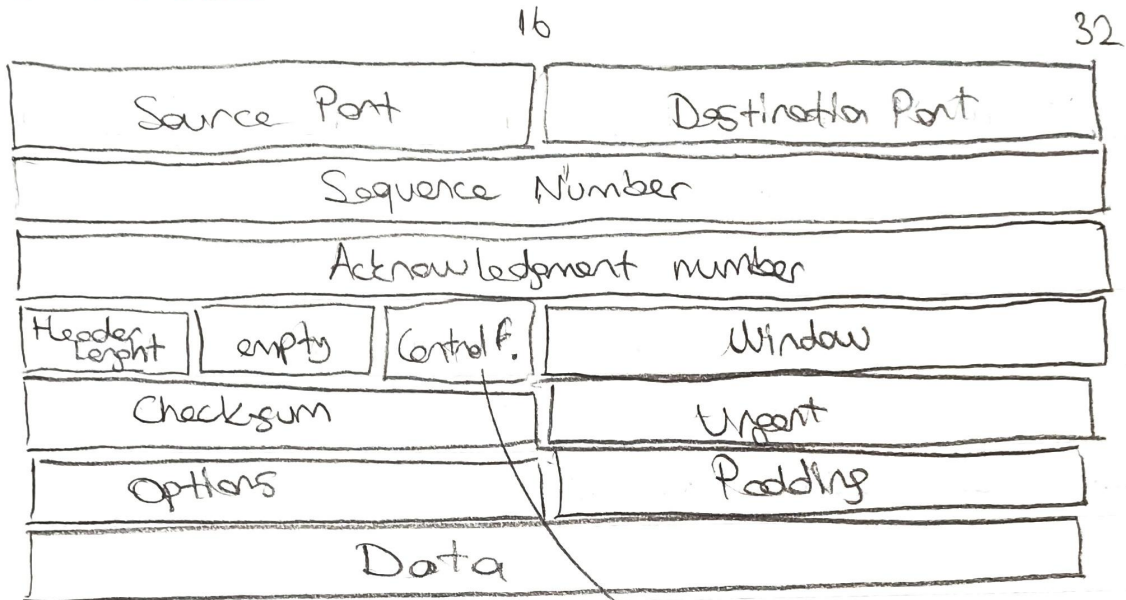 16 32
Source Port Destination Port
Sequence Number
Acknowledgment number
Header Lenght empty Control f. Window
Checksum Urgent
Options Padding
Data